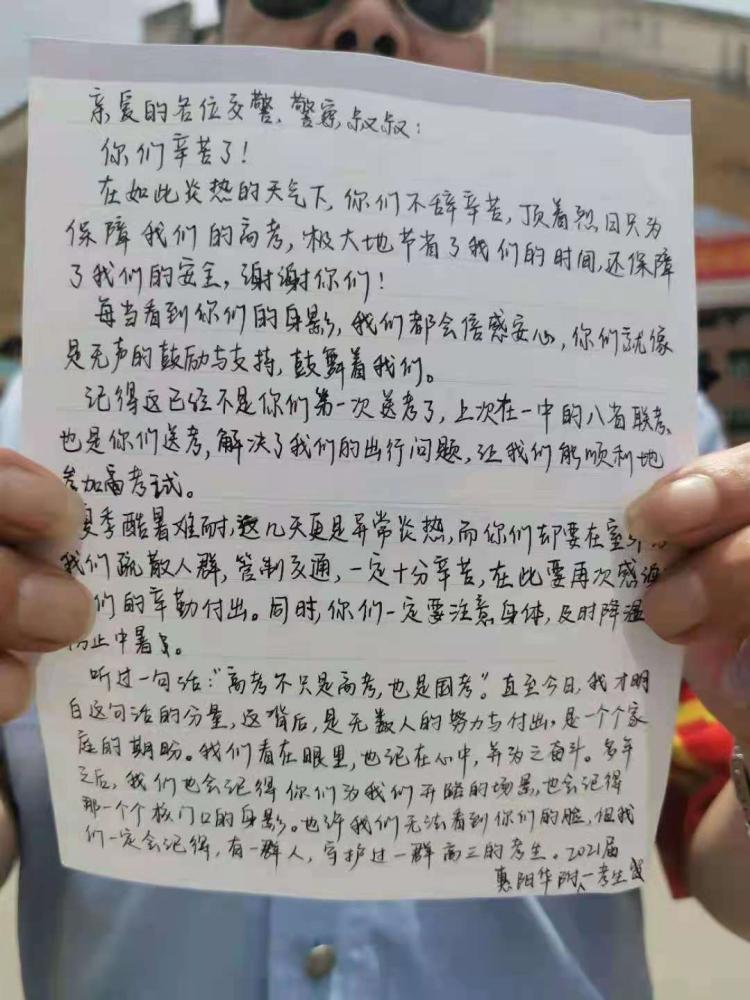 亲爱的各位交警、警察叔叔：
你们辛苦了！
在如此炎热的天气下，你们不辞辛苦，顶着烈日只为
保障我们的高考，极大地节省了我们的时间，还保障
了我们的安全，谢谢你们！
每当看到你们的身影，我们都会倍感安心，你们就像
是无声的鼓励与支持，鼓舞着我们。
记得这已经不是你们第一次送考了，上次在一中的八省联考
也是你们送考，解决了我们的出行问题，让我们能顺利地
参加高考试。
夏季酷暑难耐，这几天更是异常炎热，而你们却要在室外
我们疏散人群，管制交通，一定十分辛苦，在此要再次感谢
们的辛勤付出。同时，你们一定要注意身体，及时降温
防止中暑。
听过一句话："高考不只是高考，也是国考"。直至今日，我才明
白这句话的分量，这背后，是无数人的努力与付出，是一个个家
庭的期盼。我们看在眼里，也记在心中，并为之奋斗。多年
之后，我们也会记得你们为我们开路的场景，也会记得
那一个个校门口的身影。也许我们无法看到你们的脸，但我
们一定会记得，有一群人，守护过一群高三的考生。2021届
惠阳华附一考生